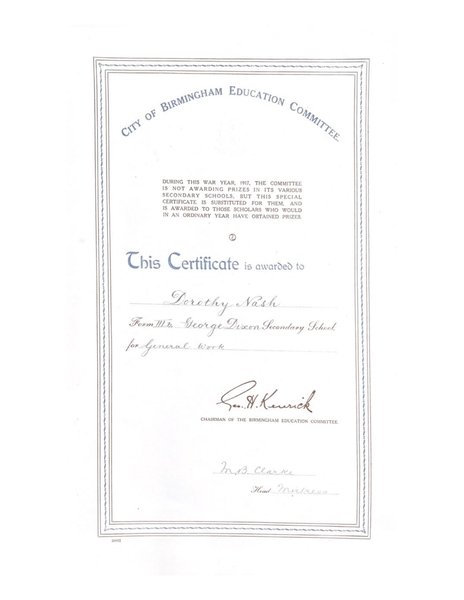 CITY OF BIRMINGHAM EDUCATION COMMITTEE.
DURING THIS WAR YEAR, 1917, THE COMMITTEE
IS NOT AWARDING PRIZES IN ITS VARIOUS
SECONDARY SCHOOLS, BUT THIS SPECIAL
CERTIFICATE IS SUBSTITUTED FOR THEM, AND
IS AWARDED TO THOSE SCHOLARS WHO WOULD
IN AN ORDINARY YEAR HAVE OBTAINED PRIZES.
This Certificate is awarded to
Dorothy Nash
Form III George Dixon Secondary School
for General Work
Geo. H. Kenrick
CHAIRMAN OF THE BIRMINGHAM EDUCATION COMMITTEE.
M.B. Clarke
Head Mistress